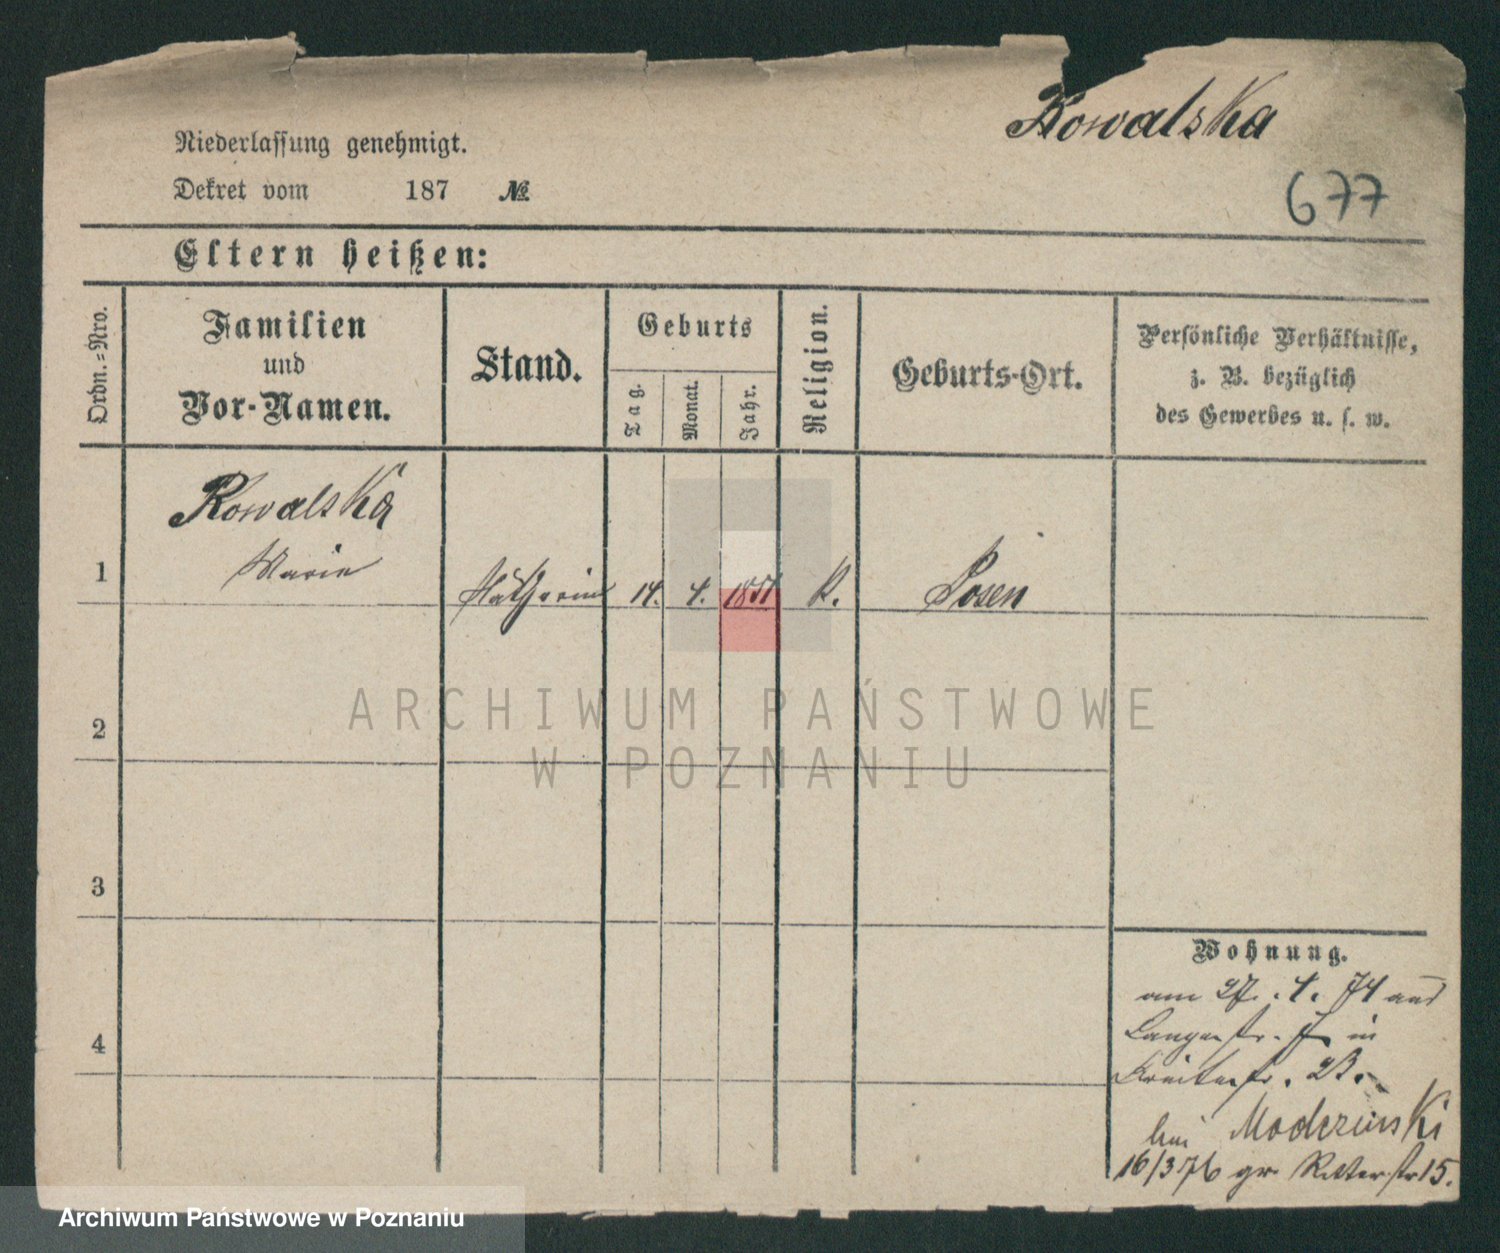 Kowalska
677
Niederlassung genehmigt.
Dekret vom 187 №
Eltern heißen:
Ordn.=Nro.
Familien
und
Vor-Namen.
Stand.
Geburts
Tag.
Monat.
Jahr.
Religion.
Geburts-Ort.
Persönliche Verhältnisse,
z. B. bezüglich
des Gewerbes u. s. w.
Kowalska
1 Marie 14. 4. 1851 K. Posen
2
3
4
Wohnung.
am 27. 4. 74 aus
Langestr. 7 in
Breitestr. 23.
bei Moderzinski
16/3 76 Ritterstr 15.
ARCHIWUM PAŃSTWOWE
W POZNANIU
Archiwum Państwowe w Poznaniu